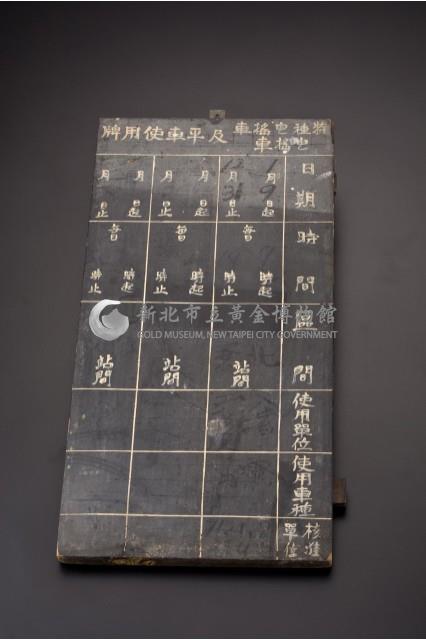 特種 搖車 及平車使用牌
日期
1月9日起
12月31日止
月 日起
月 日止
月 日起
月 日止
時間
每日 時起 時止
每日 時起 時止
每日 時起 時止
區間
站間
站間
站間
使用單位
使用車種
核准單位
新北市立黃金博物館
GOLD MUSEUM, NEW TAIPEI CITY GOVERNMENT